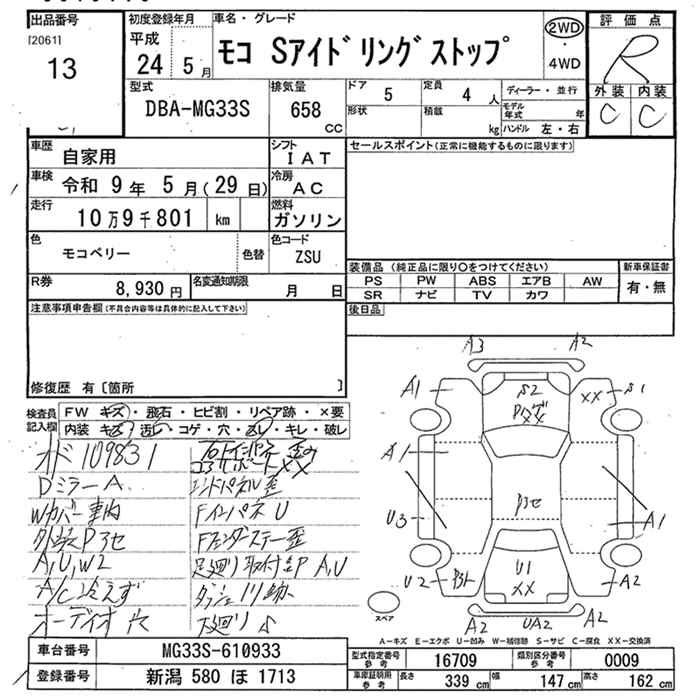 出品番号
[2061]
13
初度登録年月
平成
24 5月
車名・グレード
モコ Sアイドリングストップ
2WD
・
4WD
評価点
R
外装 内装
C C
型式
DBA-MG33S
排気量
658 CC
ドア 5
定員 4 人
形状
積載 kg
ディーラー・並行
モデル年式 年
ハンドル 左・右
車歴
自家用
シフト
IAT
セールスポイント(正常に機能するものに限ります)
車検
令和 9年 5月(29日)
冷房
AC
走行
10万9千801 km
燃料
ガソリン
色
モコベリー
色替
色コード
ZSU
装備品(純正品に限り○をつけてください)
新車保証書
PS PW ABS エアB AW
SR ナビ TV カワ
有・無
R券
8,930円
名変通知期限
月 日
後日品
注意事項申告欄(不具合内容等は具体的に記入して下さい)
修復歴 有〔箇所 〕
検査員記入欄
FW キズ・飛石・ヒビ割・リペア跡・×要
内装 キズ・汚レ・コゲ・穴・スレ・キレ・破レ
オド109831
DミラーA
Wカバー車内
外装P3セ
A,U,W2
A/C冷えず
オーディオ
コアサポートXX
エンドパネル歪
FインパネU
足廻り取付部P A,U
下廻りS
A3 A2
A1 S2 XX S1
A1
P3セ
U3 A1
U2 U1 XX A2
A2 UA2 A2
スペア
A-キズ E-エクボ U-凹み W-補修跡 S-サビ C-腐食 XX-交換済
車台番号
MG33S-610933
登録番号
新潟 580 ほ 1713
型式指定番号参考
16709
類別区分番号参考
0009
車庫証明用参考
長さ 339cm 幅 147cm 高さ 162cm